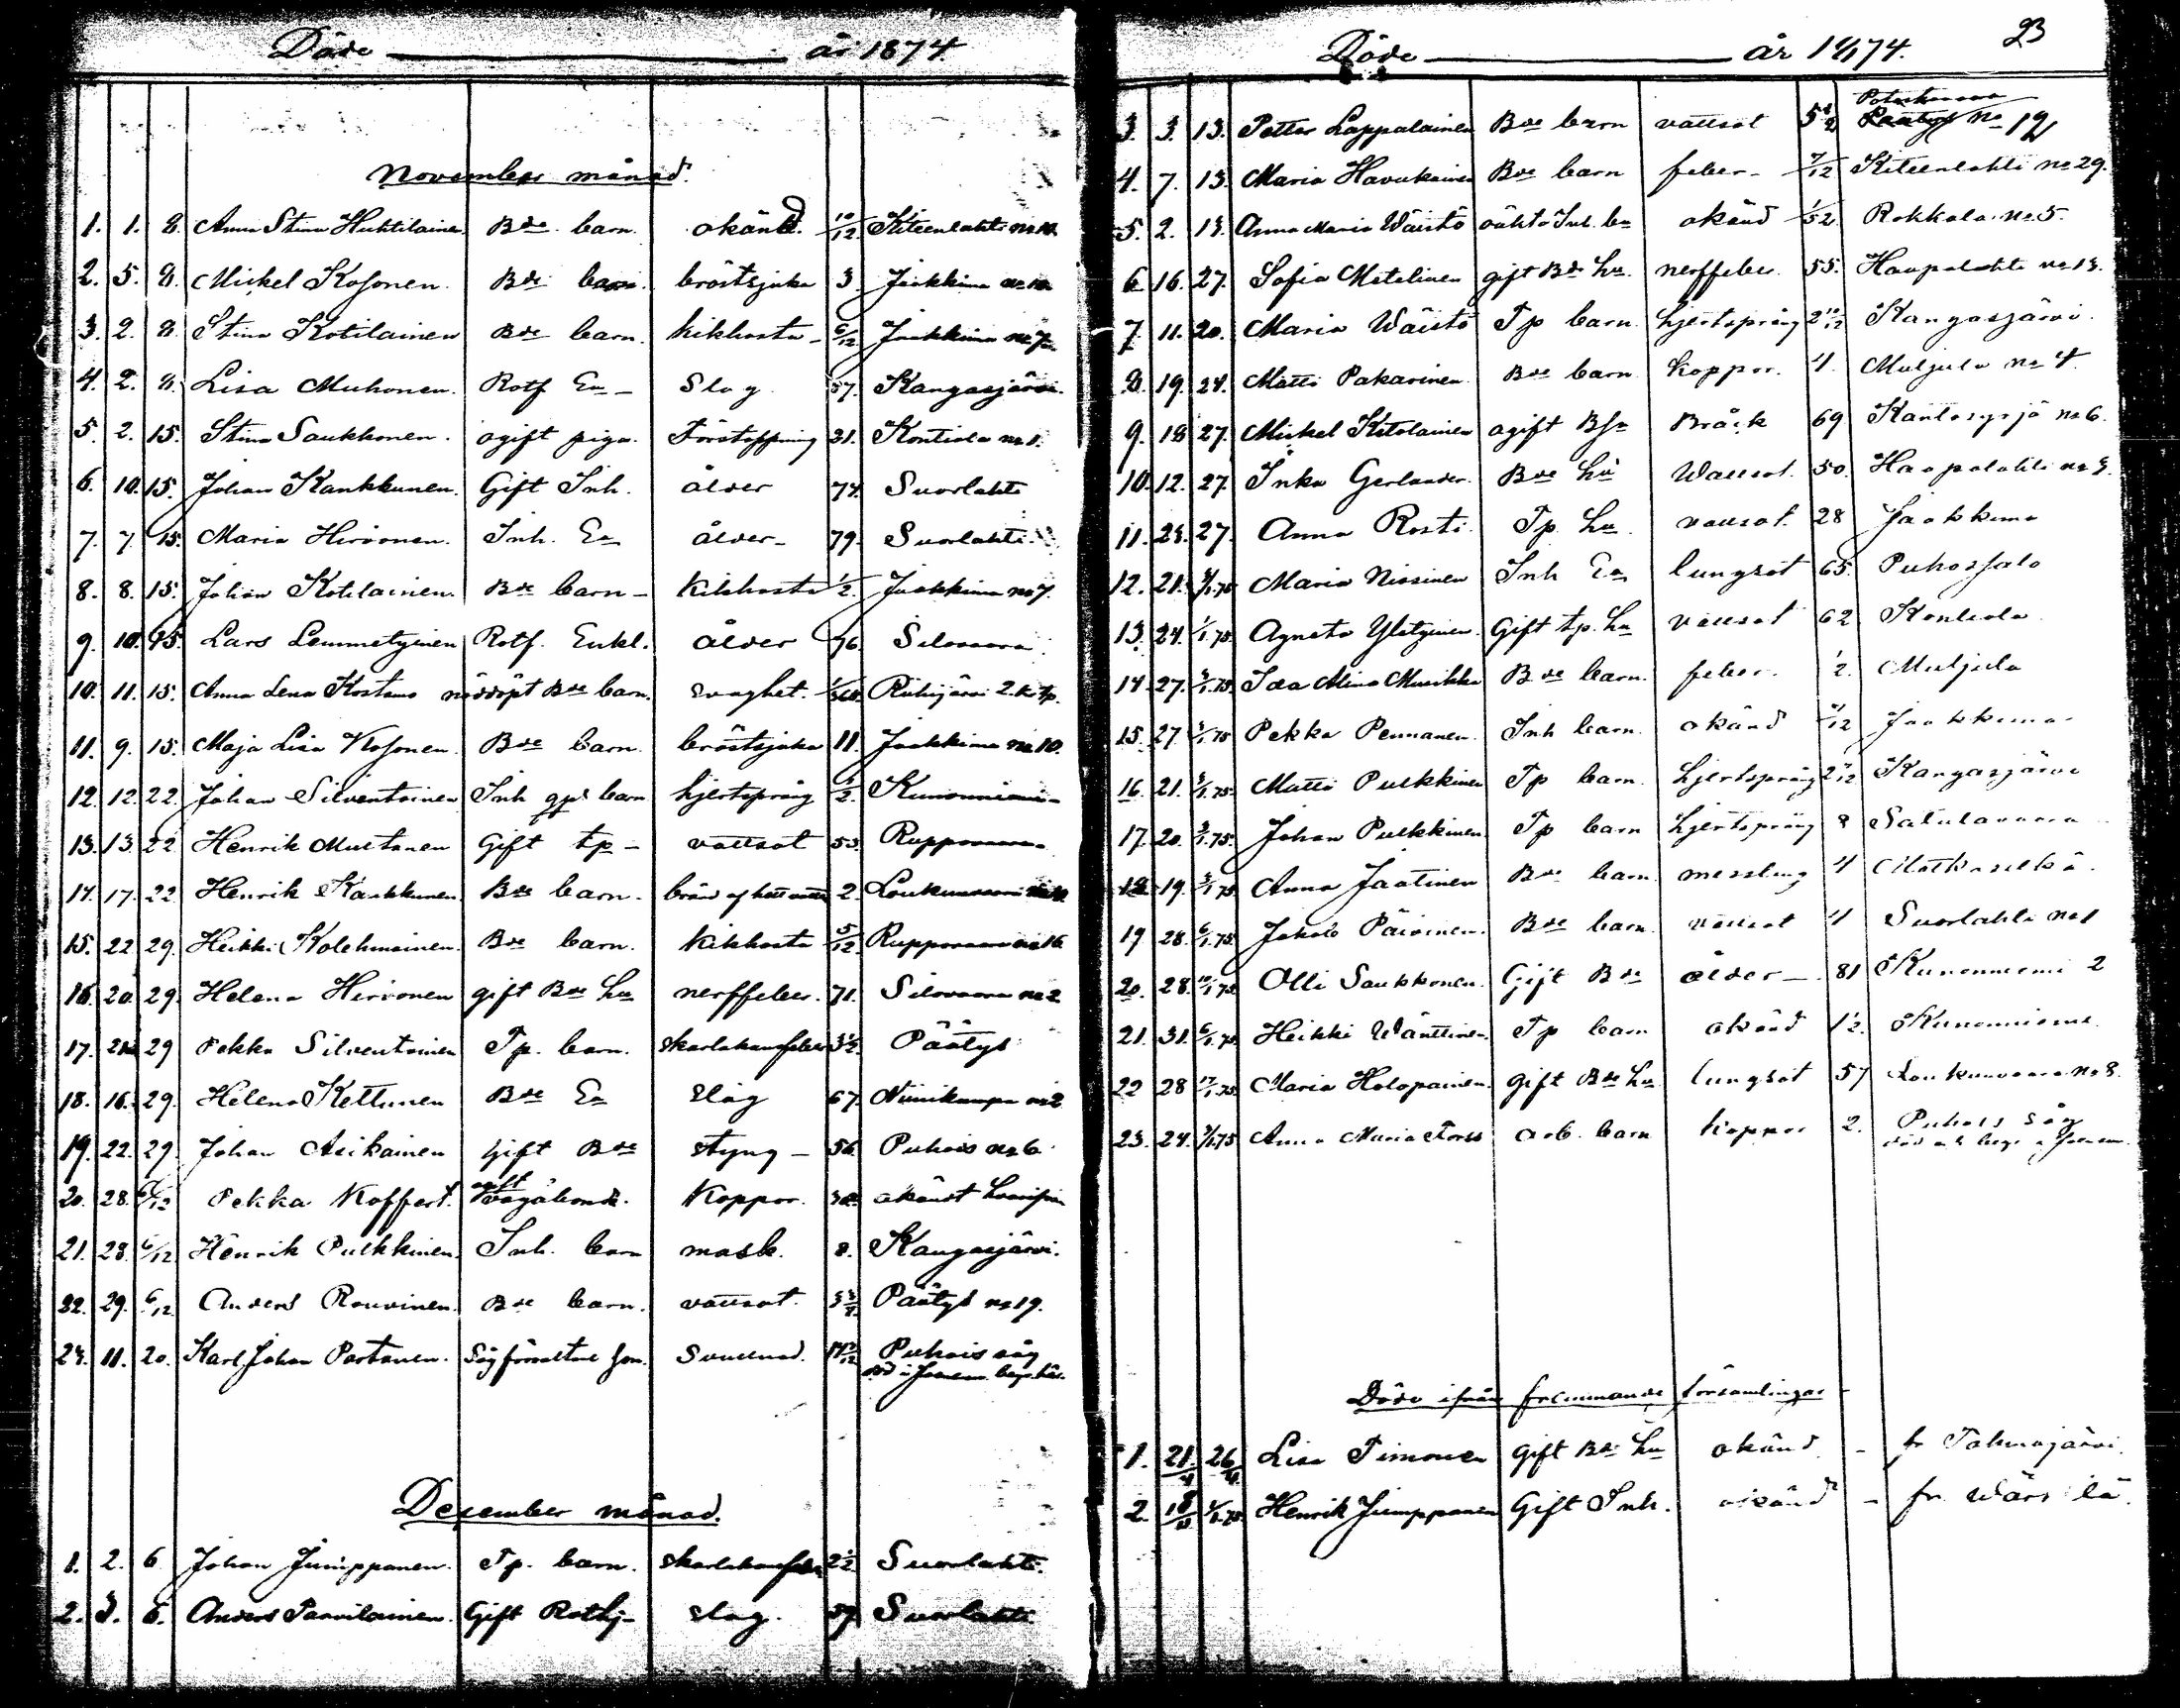 Döde år 1874.
November månad.
1. 1. 8. Anna Stina Huhtilainen Bde barn. okänd. 10/12 Kiteenlahti no 10.
2. 5. 8. Mickel Kosonen. Bde barn. bröstsjuka 3. Jaakkima no 10.
3. 2. 8. Stina Kotilainen Bde barn. kikhosta 6/12 Jaakkima no 7.
4. 2. 8. Lisa Muhonen. Rotf Ea Slag 57. Kangasjärvi.
5. 2. 15. Stina Saukkonen. ogift piga. Förstoppning 31. Kontiola no 1.
6. 10. 15. Johan Kankkunen. Gift Inh. ålder 74 Suorlahti
7. 7. 15. Maria Hirvonen. Inh. Ea ålder 79. Suorlahti.
8. 8. 15. Johan Kotilainen. Bde barn Kikhosta 1/2. Jaakkima no 7.
9. 10. 15. Lars Lemmetyinen Rotf. Enkl. Ålder 76 Silovaara
10. 11. 15. Anna Lena Kostamo nöddöpt Bde barn. svaghet. 1/365. Riihijärvi 2. k. tp.
11. 9. 15. Maja Lisa Kosonen. Bde barn. bröstsjuka 11. Jaakkima no 10.
12. 12. 22. Johan Silventoinen Inh barn hjertsprång Kunonniemi
13. 13. 22. Henrik Mustonen Gift tp vattsot 53. Ruppovaara
14. 17. 22. Henrik Kankkunen Bde barn. bränd af hett vatten 2. Loukunvaara
15. 22. 29. Heikki Kolehmainen. Bde barn. Kikhosta 5/12 Ruppovaara no 16
16. 20. 29. Helena Hirvonen gift Bde hu nerffeber. 71. Silovaara no 2
17. 29 Pekka Silventoinen Tp. barn. skarlakansfeber 3 1/2 Päätys
18. 16. 29. Helena Kettunen Bde Ea Slag 67. Niinikumpu no 2
19. 22. 29. Johan Asikainen Gift Bde styng 56. Puhois no 6.
20. 28. 6/12 Pekka Koffert. ogift vagabond. Koppor. okändt hemvist
21. 28. 6/12 Henrik Pulkkinen Inh. barn mask. 8. Kangasjärvi.
22. 29. 6/12 Anders Rouvinen. Bde barn. vattsot. 3 3/4. Päätys no 19.
23. 11. 20. Karl Johan Partanen. Sågförvaltare son. Svullnad. Puhois såg
död i Joensuu begr. här.
December månad.
1. 2. 6 Johan Jumppanen. Tp. barn. skarlakansfeber 2 1/2 Suorlahti.
2. 3. 6. Anders Parvilainen. Gift Rothj slag. 57 Suorlahti
Döde år 1874. 23
3. 3. 13. Petter Lappalainen Bde barn vattsot 5 1/2 Potoskavaara Päätys no 19
4. 7. 13. Maria Havukainen Bde barn feber 7/12 Kiteenlahti no 29.
5. 2. 13. Anna Maria Wäistö oäkta Inh. bn okänd 1/52 Rokkala no 5.
6 16. 27. Sofia Matilainen gift Bde hu. nerffeber. 55. Haapalahti no 13.
7 11. 20. Maria Wäistö Tp barn hjertsprång 2 Kangasjärvi.
8. 19. 27. Matti Pakarinen Bde barn koppor. 4. Muljula no 4.
9. 18 27. Mickel Kotolainen ogift Bråck 69 Kantosyrjä no 6.
10. 12. 27. Inka Gerlander. Bde hu Wattsot. 50. Haapalahti no 3.
11. 23. 27. Anna Rosti. Tp. hu. vattsot. 28 Jaakkima
12. 21. Maria Nissinen Inh Ea lungsot 65. Puhossalo
13. 24. Agneta Yletyinen. Gift tp. hu vattsot 62 Kontiola
14. 27. Ida Mina Musikka Bde barn. feber. 1/2. Muljula
15. 27 Pekka Pennanen. Inh barn. okänd Jaakkima
16. 21. Matti Pulkkinen Tp barn. hjertsprång Kangasjärvi
17. 20. Johan Pulkkinen. Tp barn hjertsprång Satulavaara
18 19. Anna Jaatinen Bde barn messling 4 Matkaselkä.
19 28. Jakob Päivinen. Bde barn. vattsot 4 Suorlahti no 1
20. 28. Olli Saukkonen. Gift Bde ålder 81 Kunonniemi 2
21. 31. Heikki Wänttinen. Tp barn okänd 1/2. Kunonniemi.
22 28 Maria Holopainen. gift Bde hu lungsot 57 Loukunvaara no 8.
23. 24. Anna Maria Forss arb. barn koppor 2. Puhois såg
Döde ifrån fremmande församlingar
1. 21. 26 Lisa Timonen gift Bde hu okänd fr Tohmajärvi.
2. Henrik Jumppanen Gift Inh. okänd fr. Wärtsilä.